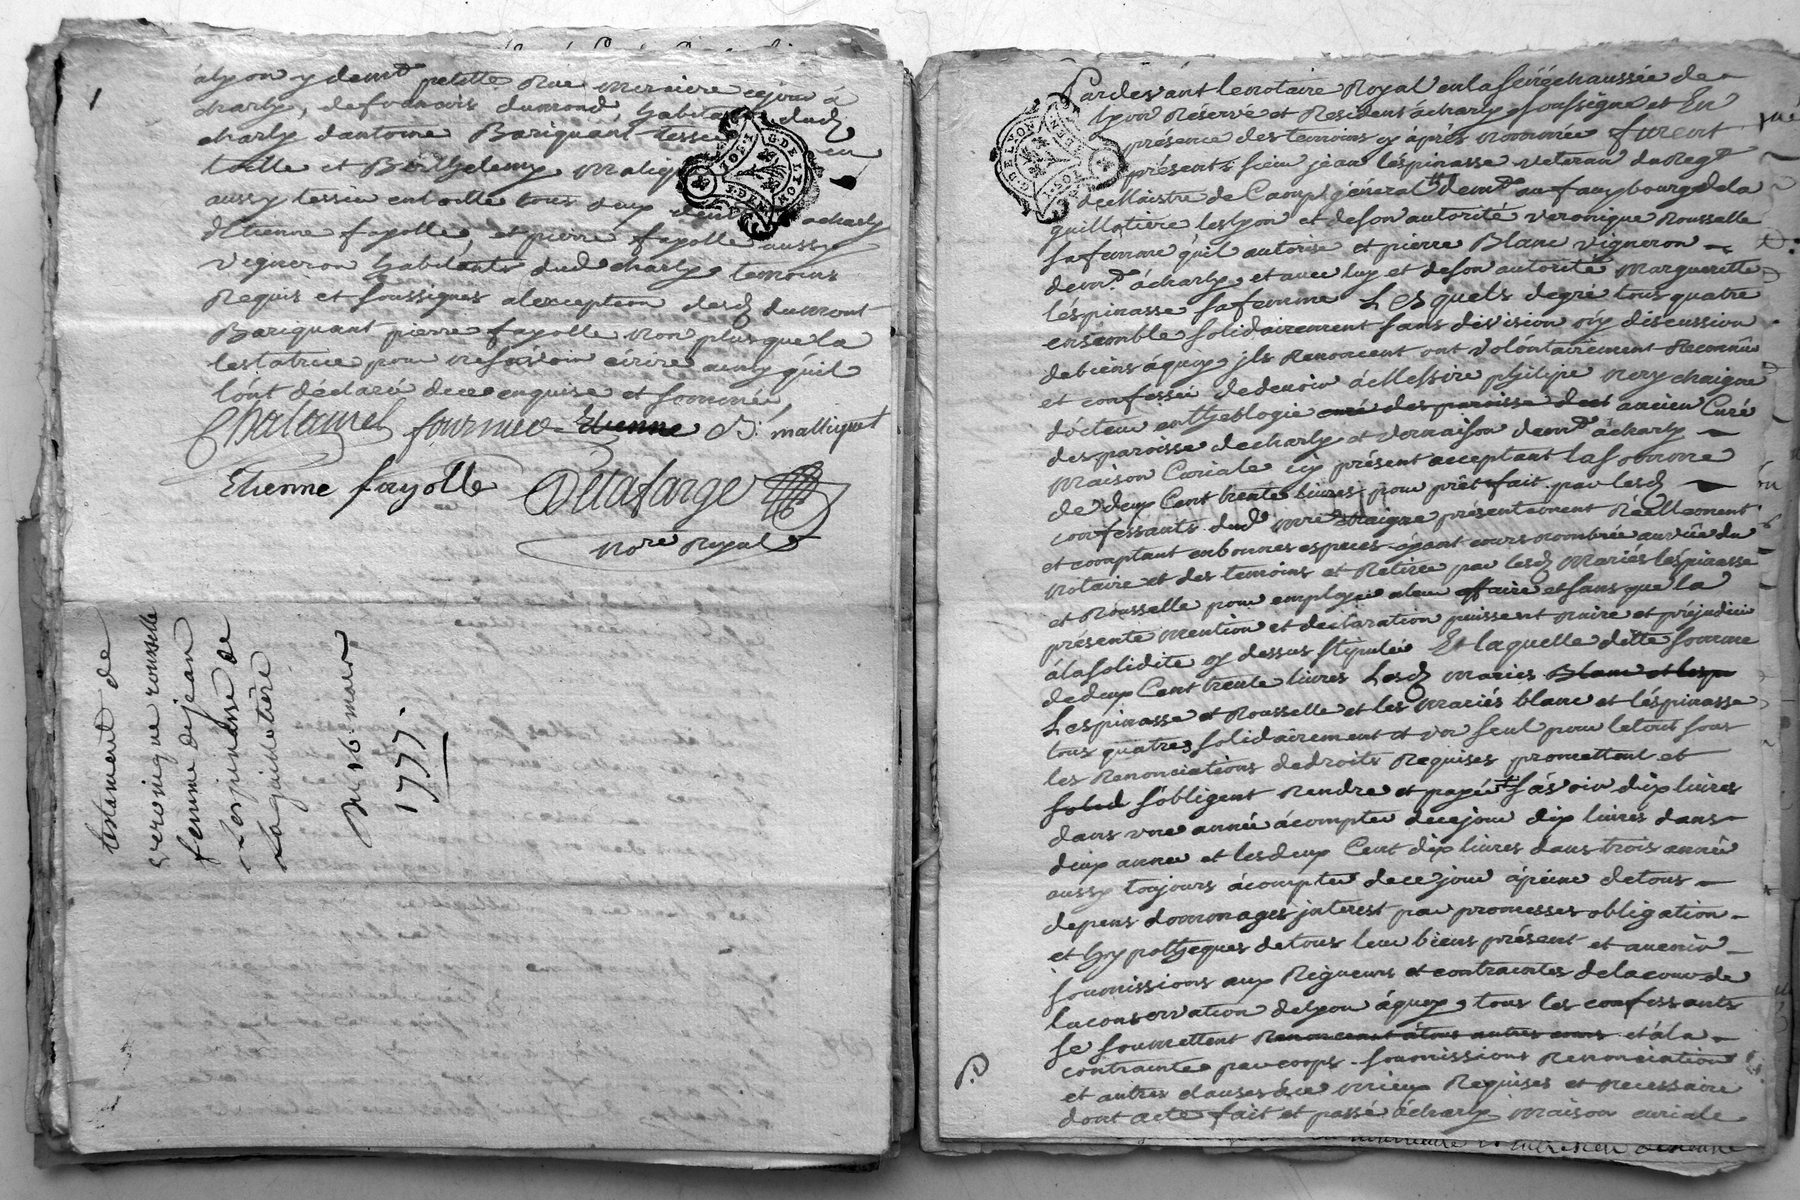 1
à lyon y demt petitte Rue merciere ce jour à
charly, de francois dumond, habitant dud
charly d'antoine Bariquant tessier en
toille et Berthelemy maliq
aussy tessier en toille tous deux à charly
d'Etienne fayolle et pierre fayolle aussy
vigneron habitants dud charly temoins
Requis et soussignés à l'exception desd dumont
Bariquant pierre fayolle non plus que la
testatrice pour ne savoir écrire ainsy qu'il
l'ont déclaré de ce enquise et sommé
Chatanel fournier Etienne B. malliquet
Etienne fayolle Delafarge
nore Royal
testament de
veronique rousselle
femme de jean
Lespinasse de
La guillotière
Du 16. mars
1777.
Pardevant le notaire Royal en la sénéchaussée de
lyon Réservé et Resident à charly soussigné et En
présence des temoins cy après nommée furent
présents sieur jean lespinasse veteran du Regt
de Maistre de Camp général demt au fauxbourg de la
guillotiere les lyon et de son autorité veronique Rousselle
sa femme qu'il autorise et pierre Blanc vigneron
demt à charly et avec luy et de son autorité Margueritte
léspinasse sa femme Lesquels de gré tous quatre
ensemble solidairement sans division ny discussion
de biens à quoy jls Renoncent ont volontairement Reconnu
et confessé de devoir à Messire philipe nery chaigne
docteur en theologie curé des paroisse de et ancien Curé
des paroisse de charly et vernaison demt à charly
Maison Curiale cy présent acceptant la somme
de deux Cent trente livres pour prêt fait par lesd
confessants dud mre chaigne présentement Réellement
et comptant en bonnes especes ayant cours nombrée au vû du
notaire et des temoins et Retirée par lesd Mariés léspinasse
et Rousselle pour employer a leur affaire et sans que la
présente mention et déclaration puissent nuire et préjudicier
à la solidité cy dessus stipulée Et laquelle dette somme
de deux Cent trente livres Lesd mariés Blanc et lesp
Lespinasse et Rousselle et les mariés blanc et léspinasse
tous quatres solidairement et un seul pour le tout sous
les Renonciations de droits Requises promettent et
solid s'obligent Rendre et payer savoir dix livres
dans une année à compter de ce jour dix livres dans
deux année et les deux Cent dix livres dans trois année
aussy toujours à compter de ce jour à peine de tous
depens dommages jnterest par promesses obligation
et hypotheques de tous leur biens présent et avenir
soumissions aux Rigueurs et contraintes de la cour de
la conservation de lyon à quoy tous les confessants
se soumettent Renonceant à tous autres cours et à la
contrainte par corps soumissions Renonciation
et autres clauses de ce mieux Requises et necessaire
dont acte fait et passé à charly maison curiale